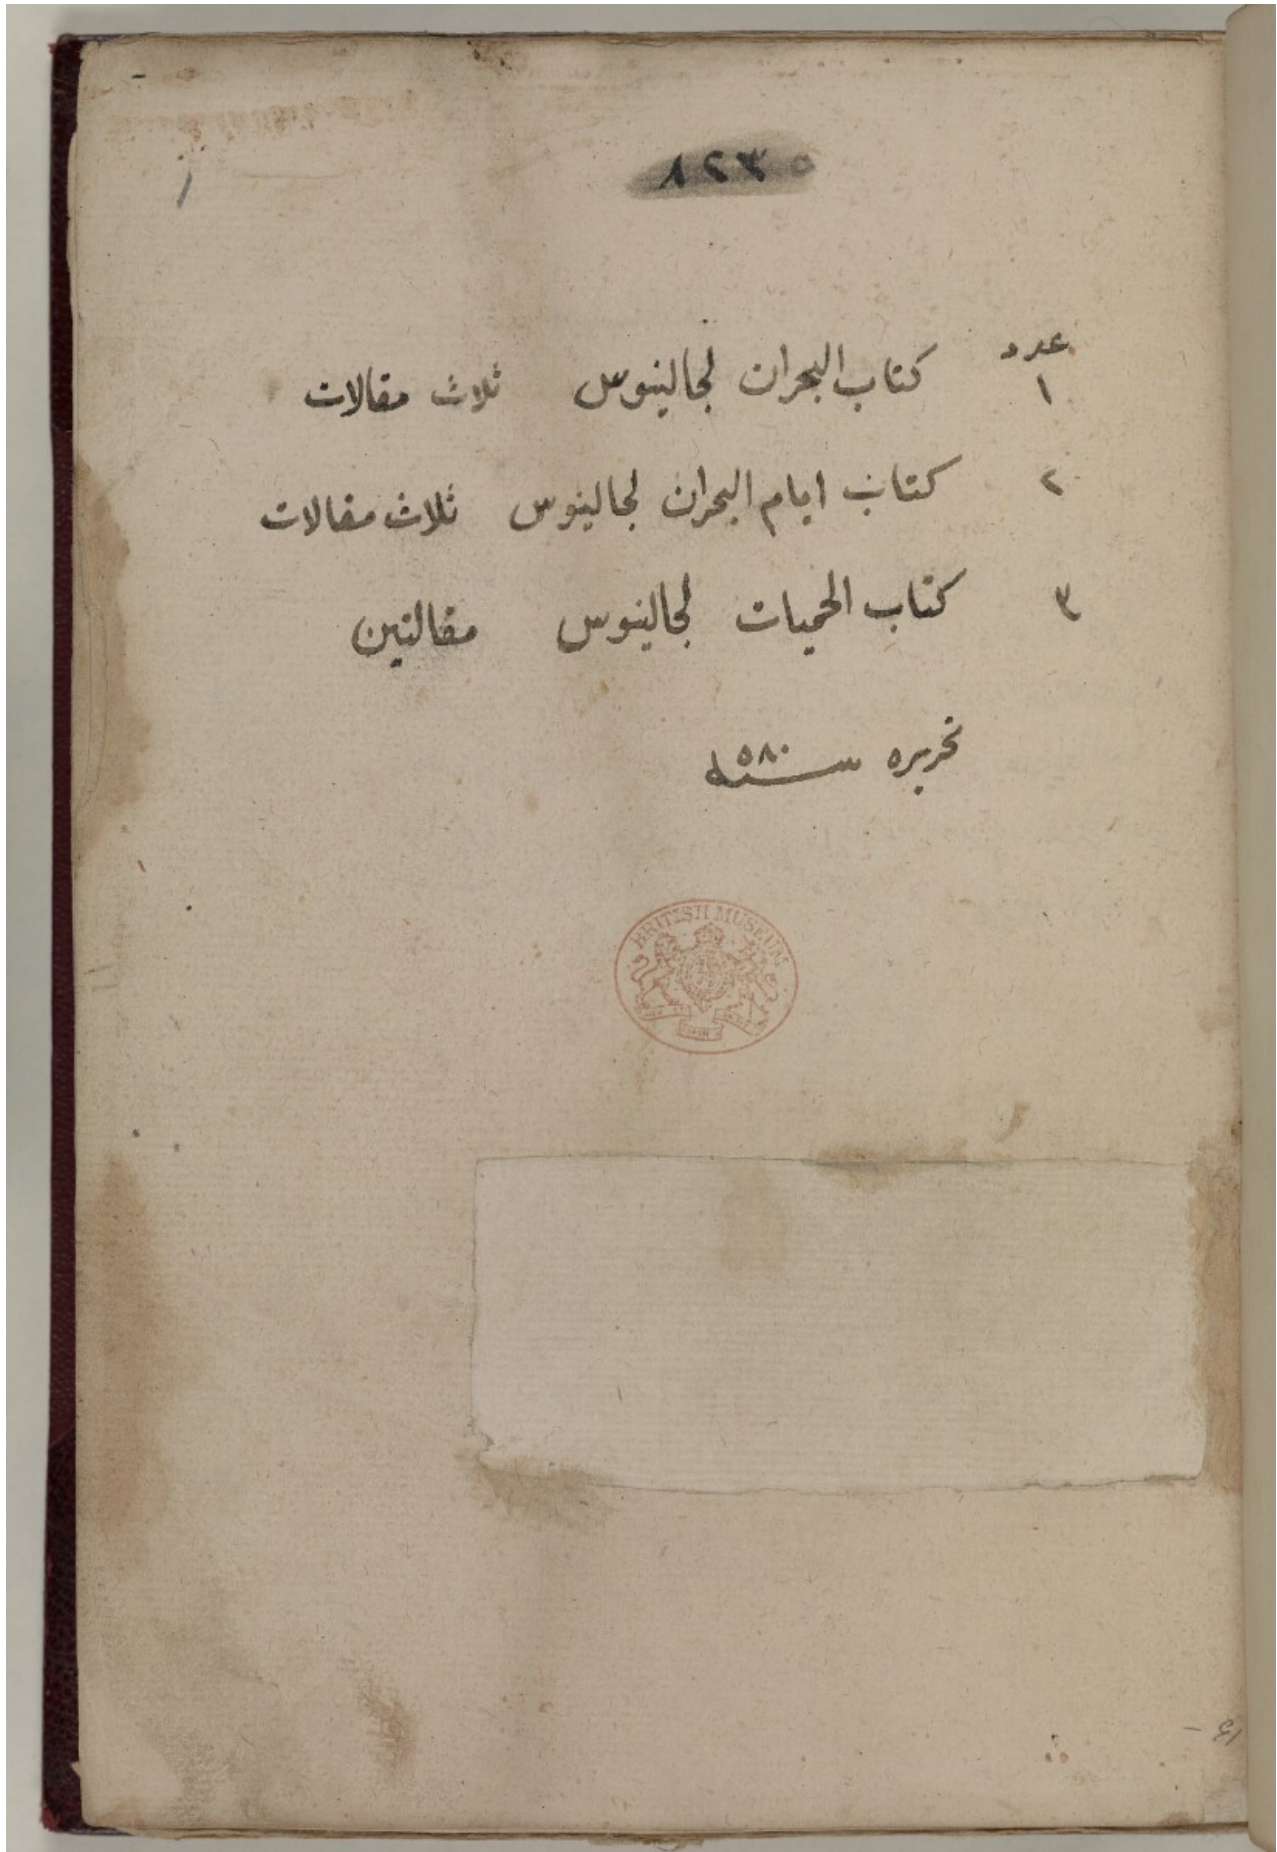 ٨٢٣٥
عدد
١ كتاب البحران لجالينوس ثلاث مقالات
٢ كتاب ايام البحران لجالينوس ثلاث مقالات
٣ كتاب الحميات لجالينوس مقالتين
تحريره سنه ٥٨٠
BRITISH MUSEUM